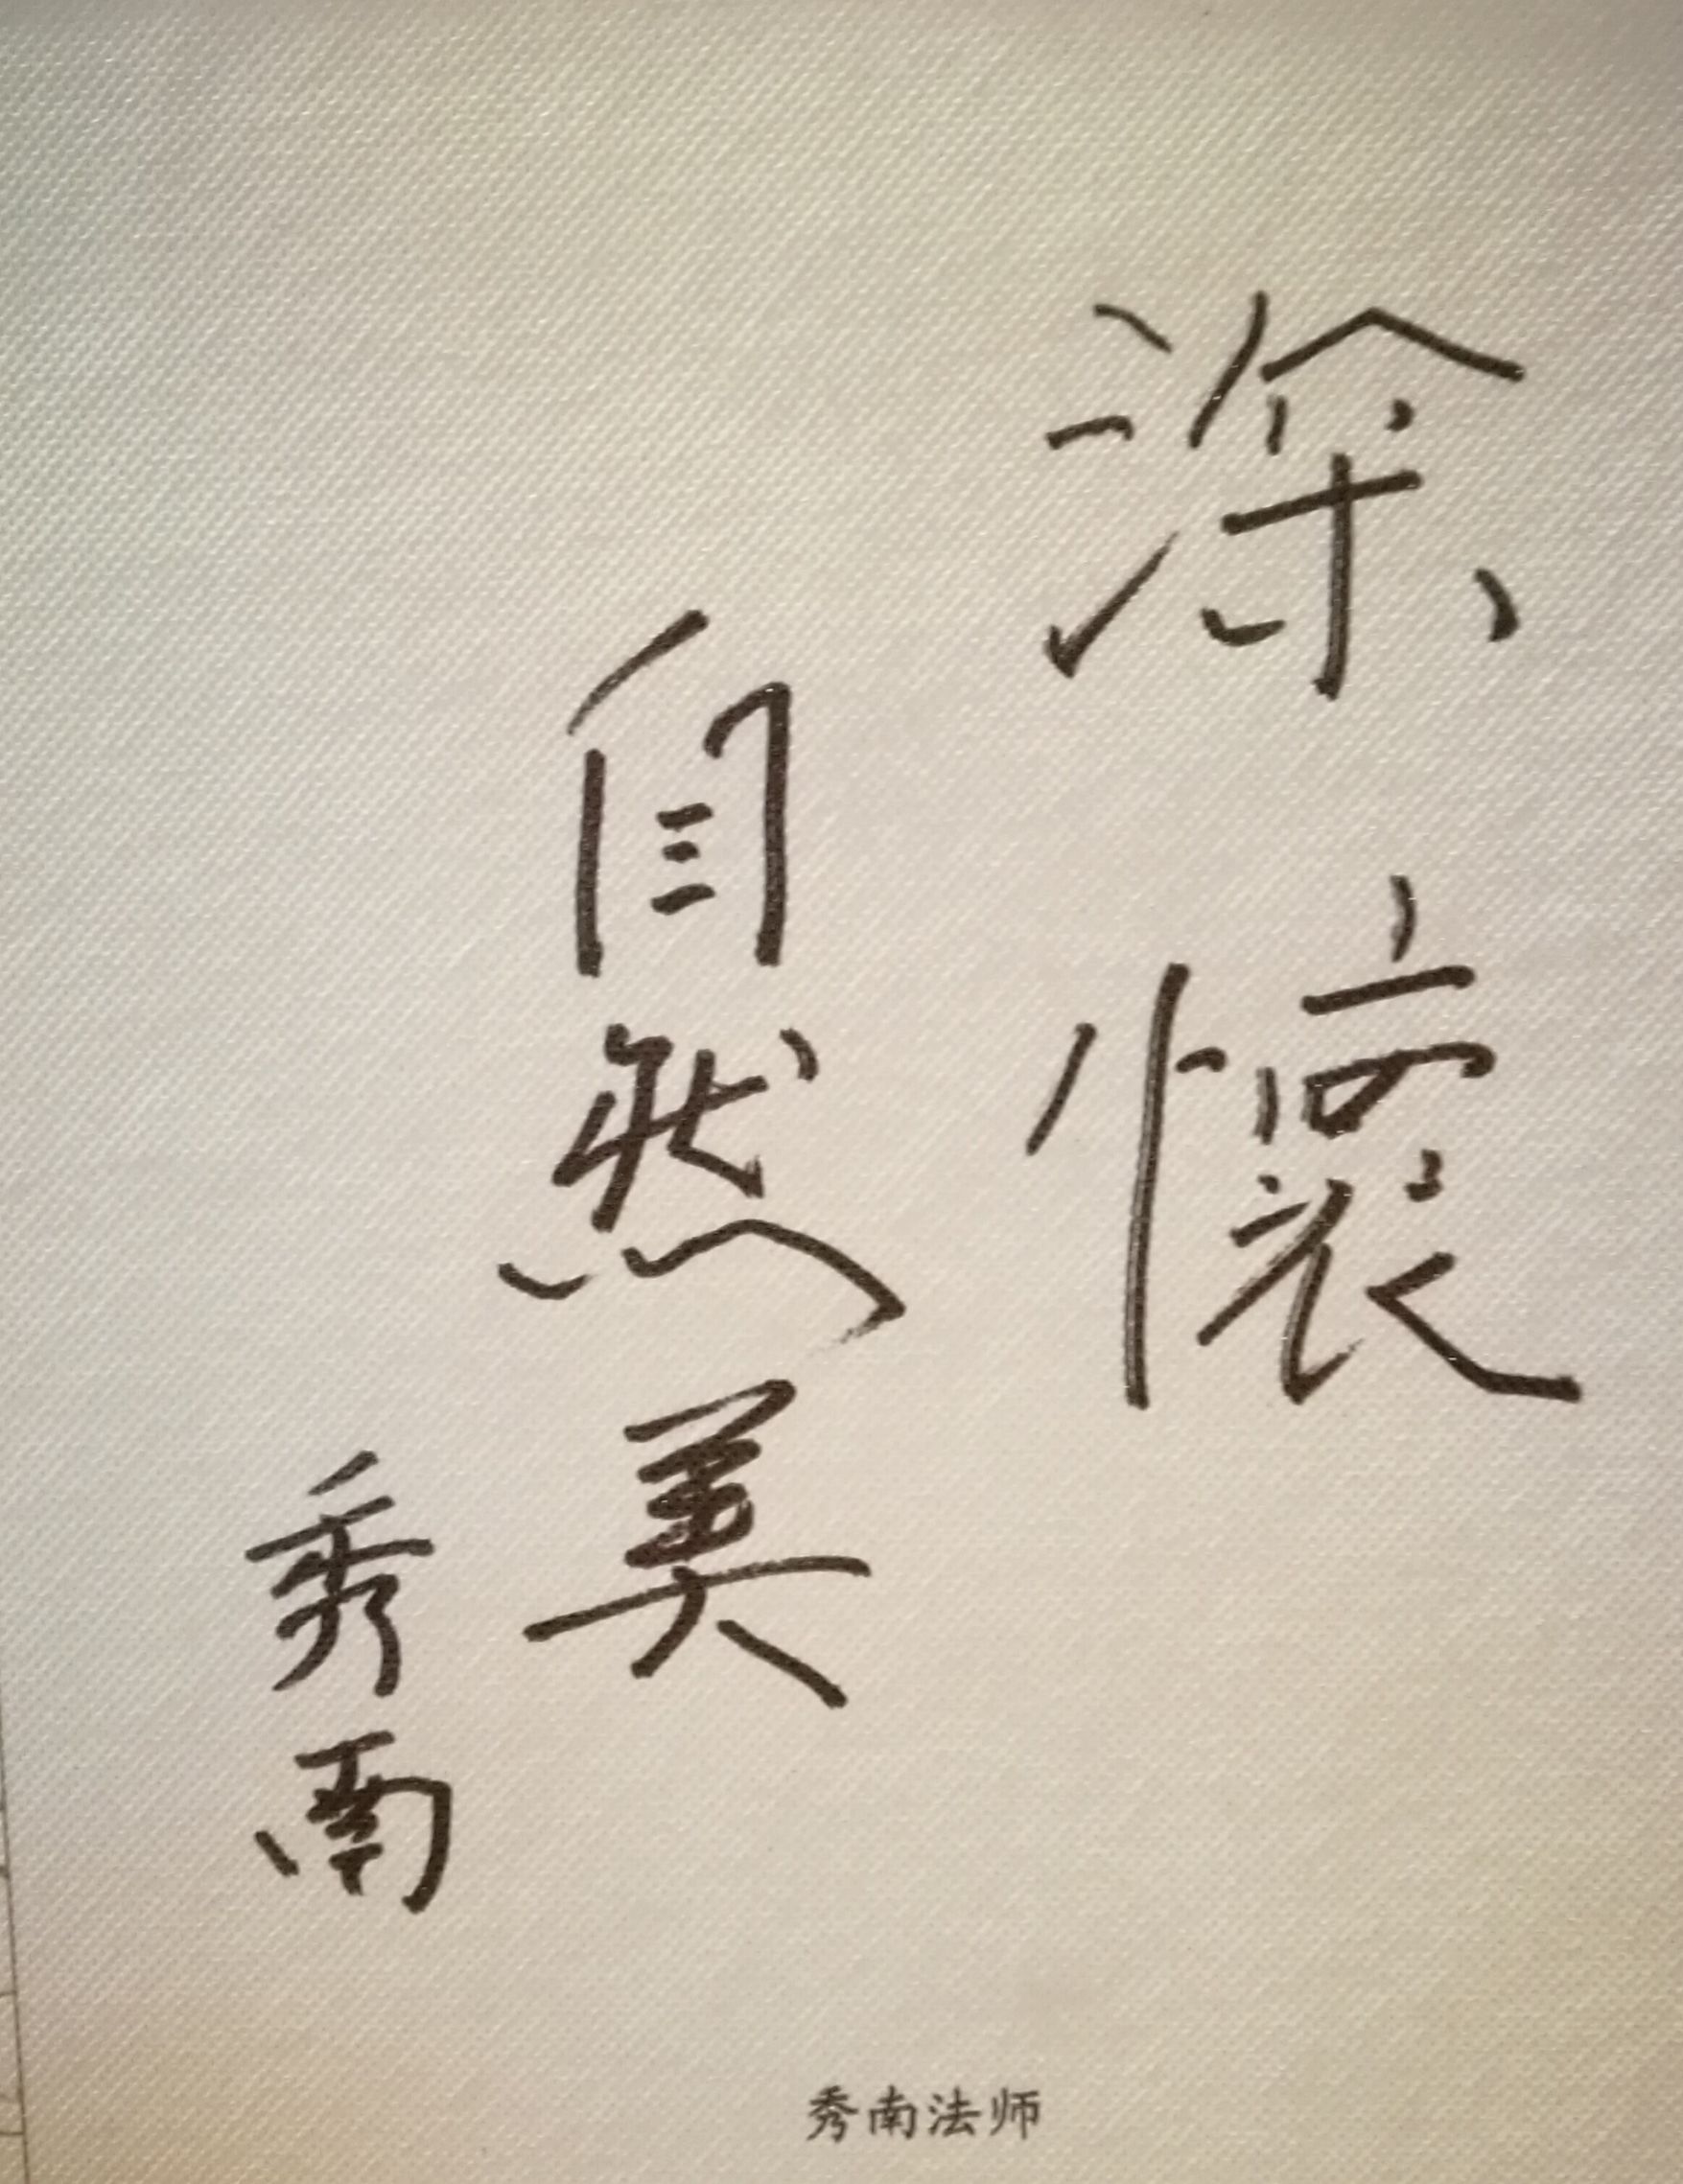 深懷
自然美
秀南
秀南法师